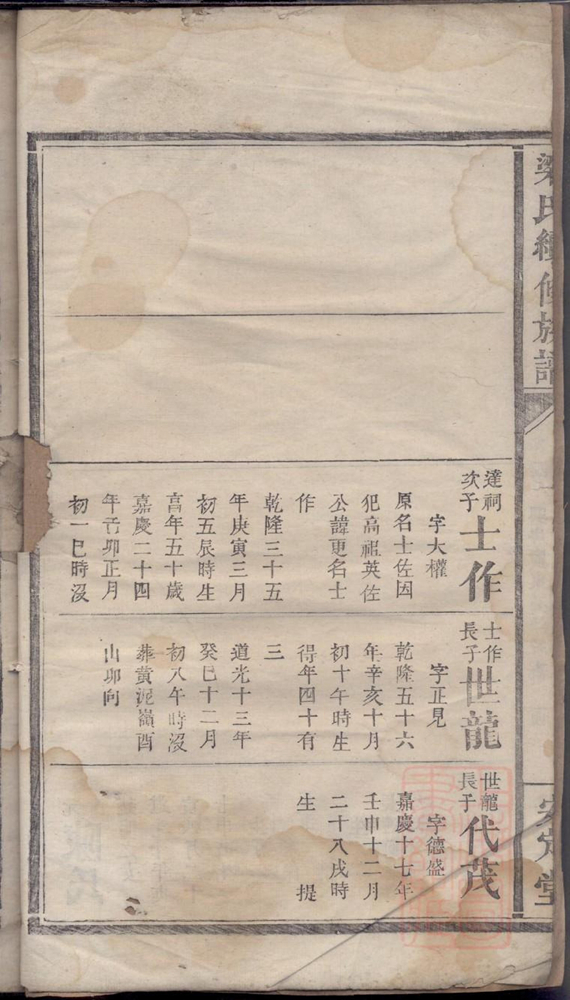 梁氏續修族譜
安定堂
達祠
次子
士作
字大權
原名士佐因
犯高祖英佐
公諱更名士
作
乾隆三十五
年庚寅三月
初五辰時生
享年五十歲
嘉慶二十四
年己卯正月
初一巳時沒
士作
長子
世龍
字正見
乾隆五十六
年辛亥十月
初十午時生
得年四十有
三
道光十三年
癸巳十二月
初八午時沒
葬黃泥嶺酉
山卯向
世龍
長子
代茂
字德盛
嘉慶十七年
壬申十二月
二十八戌時
生 提